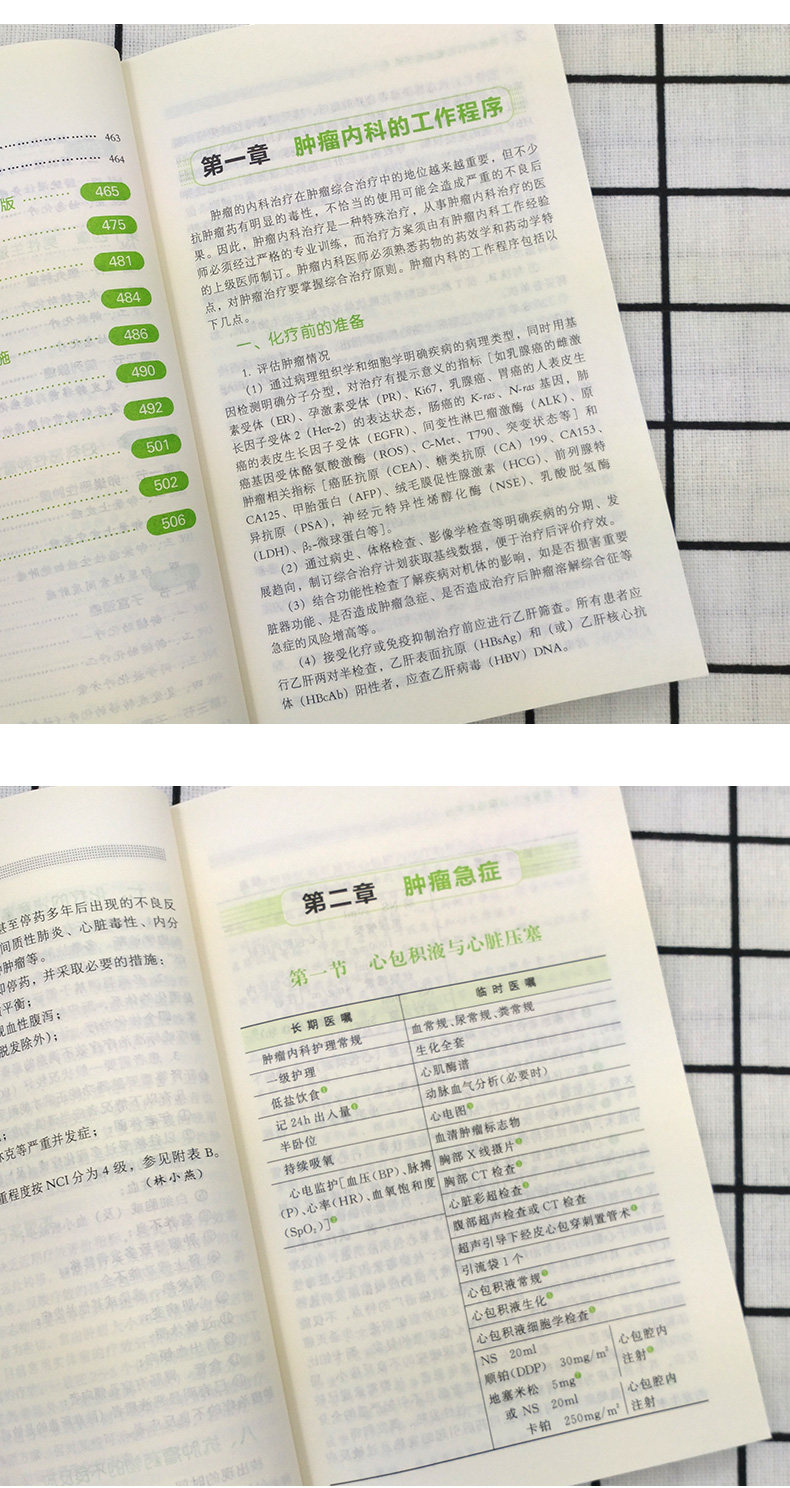 463
464
版
465
475
481
484
施
486
490
492
501
502
506
第一章 肿瘤内科的工作程序
肿瘤的内科治疗在肿瘤综合治疗中的地位越来越重要，但不少
抗肿瘤药有明显的毒性，不恰当的使用可能会造成严重的不良后
果。因此，肿瘤内科治疗是一种特殊治疗，从事肿瘤内科治疗的医
师必须经过严格的专业训练，而治疗方案须由有肿瘤内科工作经验
的上级医师制订。肿瘤内科医师必须熟悉药物的药效学和药动学特
点，对肿瘤治疗要掌握综合治疗原则。肿瘤内科的工作程序包括以
下几点。
一、化疗前的准备
1. 评估肿瘤情况
（1）通过病理组织学和细胞学明确疾病的病理类型，同时用基
因检测明确分子分型，对治疗有提示意义的指标［如乳腺癌的雌激
素受体（ER）、孕激素受体（PR）、Ki67，乳腺癌、胃癌的人表皮生
长因子受体2（Her-2）的表达状态，肠癌的K-ras、N-ras基因，肺
癌的表皮生长因子受体（EGFR）、间变性淋巴瘤激酶（ALK）、原
癌基因受体酪氨酸激酶（ROS）、C-Met、T790、突变状态等］和
肿瘤相关指标［癌胚抗原（CEA）、糖类抗原（CA）199、CA153、
CA125、甲胎蛋白（AFP）、绒毛膜促性腺激素（HCG）、前列腺特
异抗原（PSA），神经元特异性烯醇化酶（NSE）、乳酸脱氢酶
（LDH）、β₂-微球蛋白等］。
（2）通过病史、体格检查、影像学检查等明确疾病的分期、发
展趋向，制订综合治疗计划获取基线数据，便于治疗后评价疗效。
（3）结合功能性检查了解疾病对机体的影响，如是否损害重要
脏器功能、是否造成肿瘤急症、是否造成治疗后肿瘤溶解综合征等
急症的风险增高等。
（4）接受化疗或免疫抑制治疗前应进行乙肝筛查。所有患者应
行乙肝两对半检查，乙肝表面抗原（HBsAg）和（或）乙肝核心抗
体（HBcAb）阳性者，应查乙肝病毒（HBV）DNA。
甚至停药多年后出现的不良反
间质性肺炎、心脏毒性、内分
肿瘤等。
即停药，并采取必要的措施：
平衡；
血性腹泻；
脱发除外）；
；
休克等严重并发症；
重程度按NCI分为4级，参见附表B。
（林小燕）
第二章 肿瘤急症
第一节 心包积液与心脏压塞
长期医嘱 临时医嘱
肿瘤内科护理常规 血常规、尿常规、粪常规
一级护理 生化全套
低盐饮食❶ 心肌酶谱
记24h出入量❶ 动脉血气分析（必要时）
半卧位 心电图❷
持续吸氧 血清肿瘤标志物
心电监护［血压（BP）、脉搏 胸部X线摄片❷
（P）、心率（HR）、血氧饱和度 胸部CT检查❷
（SpO₂）］❷ 心脏彩超检查❷
腹部超声检查或CT检查
超声引导下经皮心包穿刺置管术❸
引流袋1个
心包积液常规❸
心包积液生化❸
心包积液细胞学检查❸
NS 20ml 心包腔内
顺铂（DDP） 30mg/m² 注射❹
地塞米松 5mg❹
或NS 20ml 心包腔内
卡铂 250mg/m² 注射